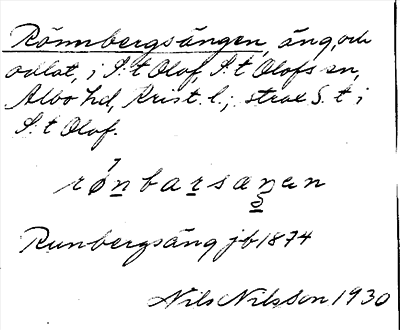 Rönnbergsängen, äng, och
odlat, i S:t Olof, S:t Olofs sn,
Albo hd, Krist. l.; strax S. t i
S:t Olof.
rǿnbarsæŋan
Runbergsäng jb 1874
Nils Nilsson 1930